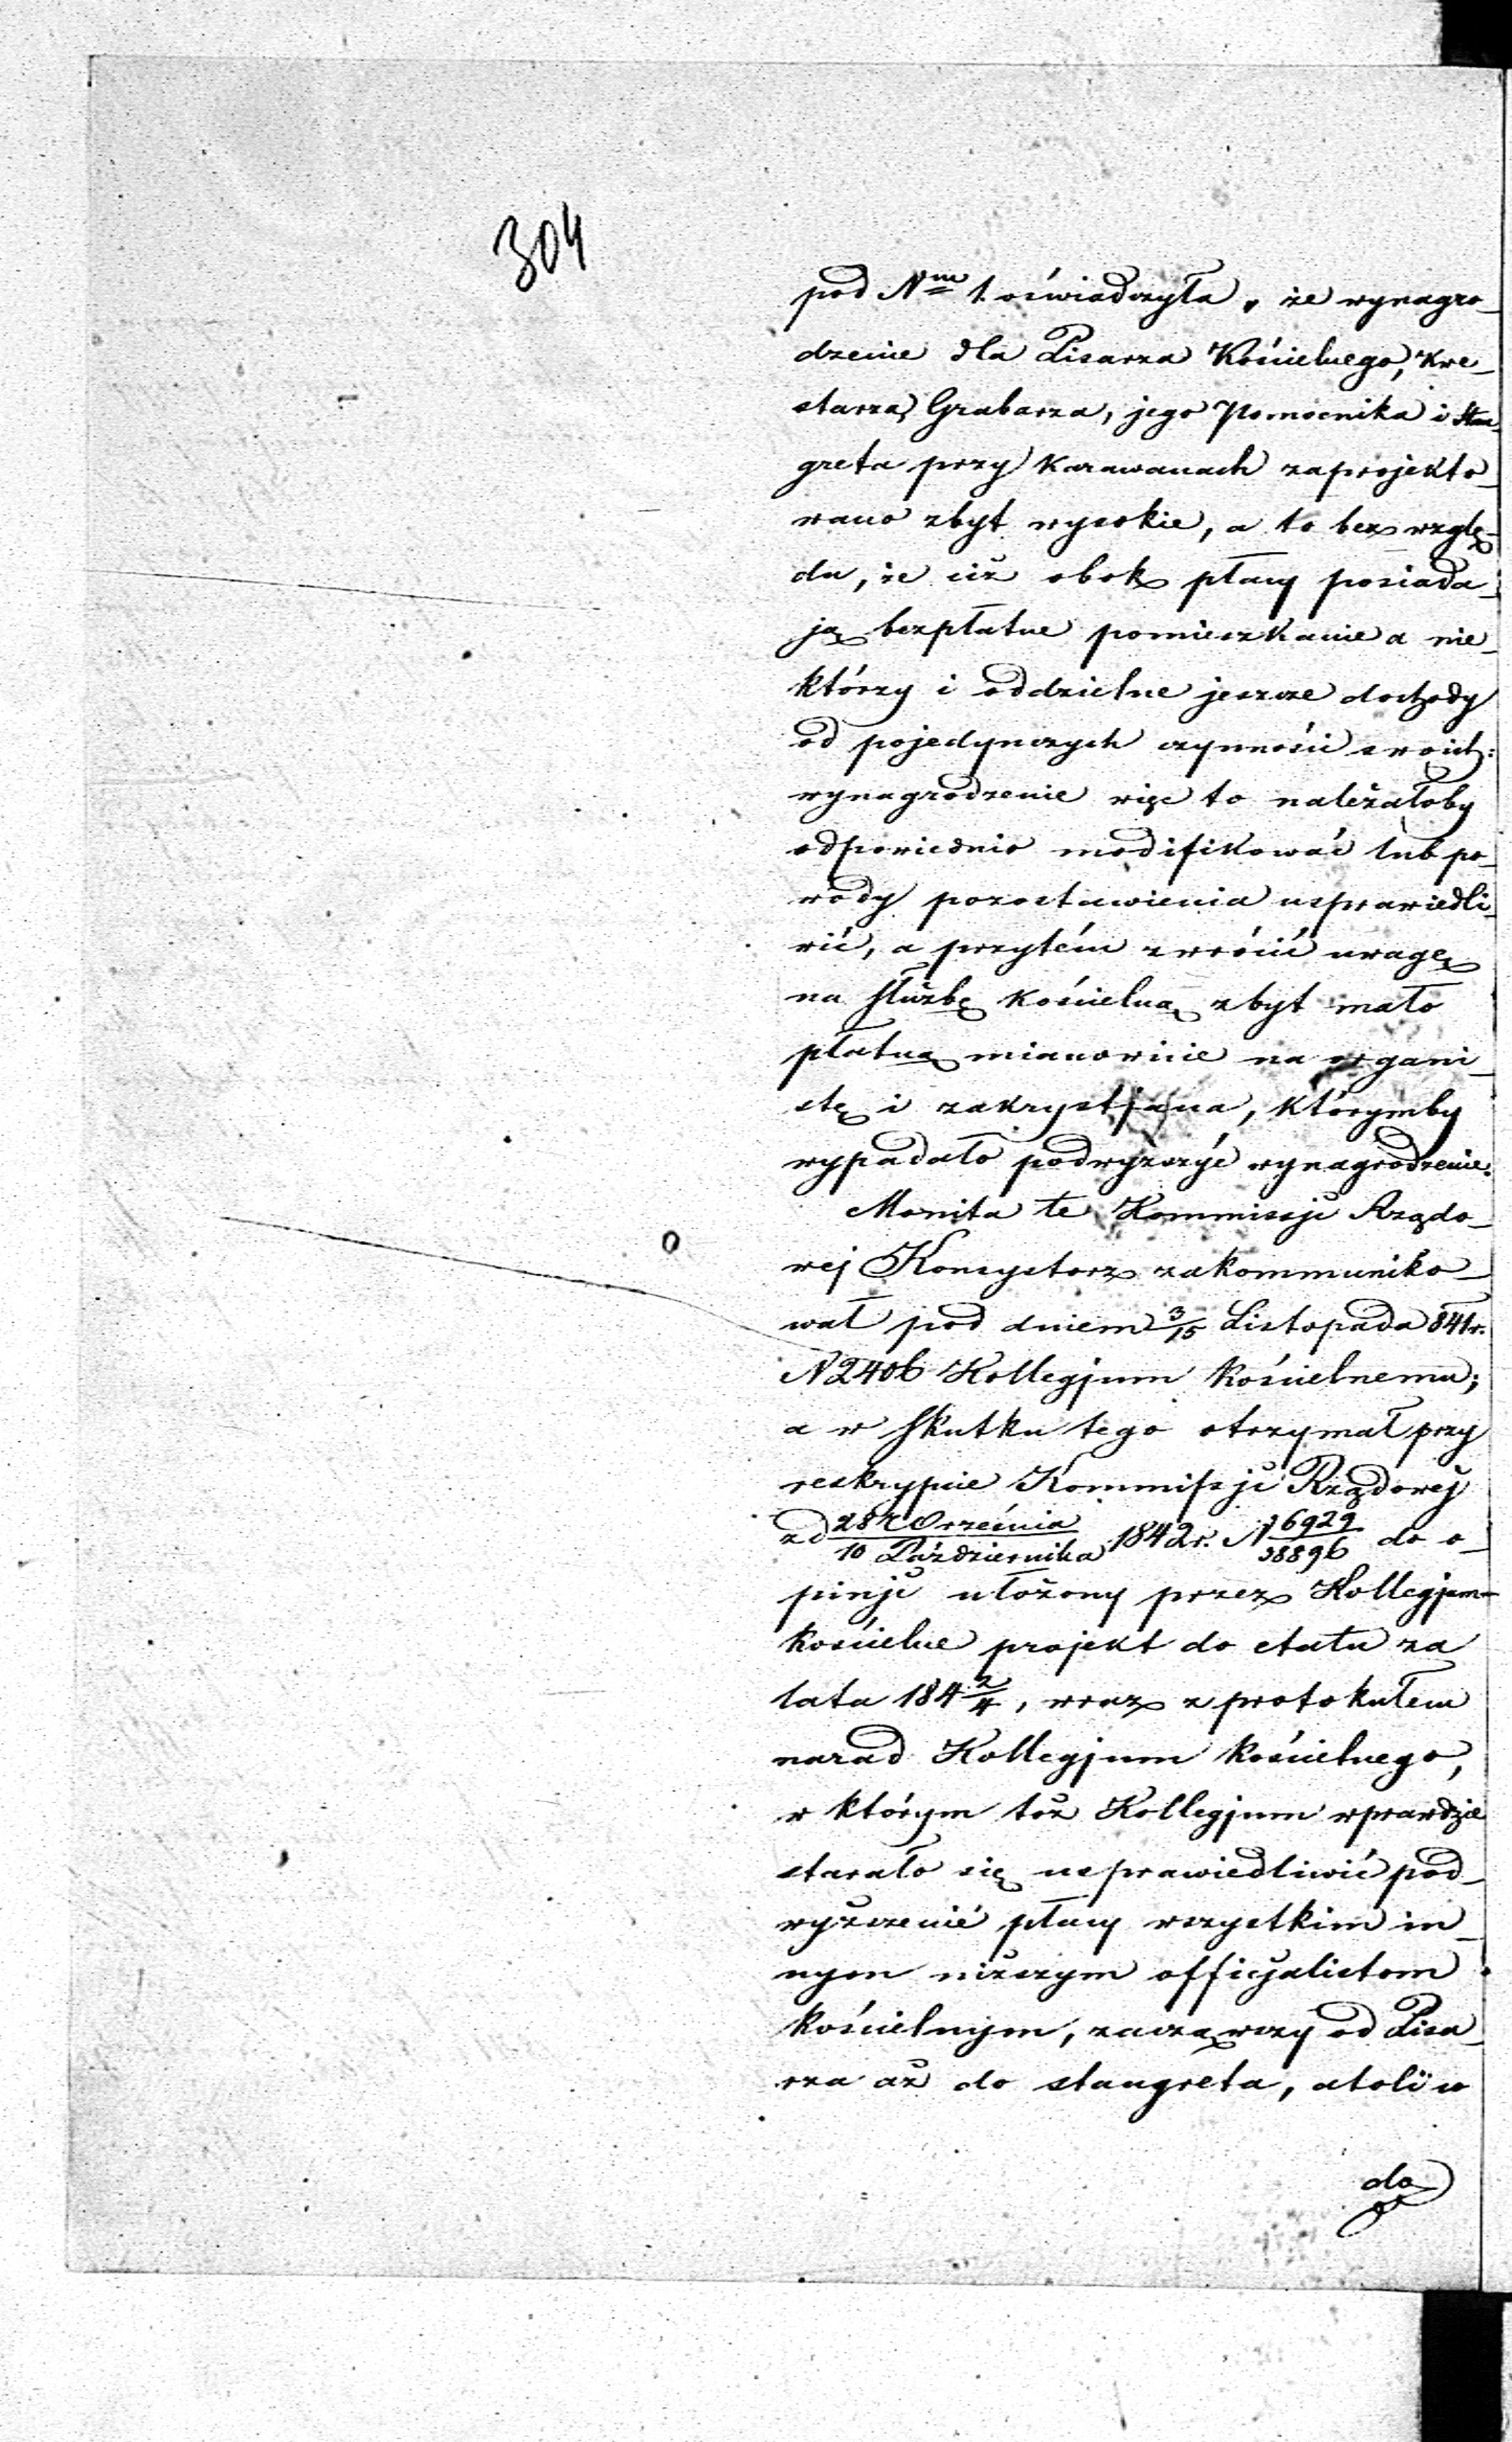 304
pod N<sup>m</sup> 1. oświadczyła, że wynagro-
dzenie dla Pisarza Kościelnego, Kwe-
starza, Grabarza, jego Pomocnika i Stan-
greta przy Karawanach zaprojekto-
wano zbyt wysokie, a to bez wzglę-
du, że ciż obok płacy posiada-
ją bezpłatne pomieszkanie a nie-
którzy i oddzielne jeszcze dochody
od pojedynczych czynności swoich:
wynagrodzenie więc to należałoby
odpowiednio modifikować lub po-
wody pozostawienia usprawiedli-
wić, a przytém zwrócić uwagę
na służbę kościelną zbyt mało
płatną mianowicie na organi-
stę i zakrystjana, którymby
wypadało podwyższyć wynagrodzenie.
Monita te Kommissji Rządo-
wej Konsystorz zakommuniko-
wał pod dniem 3/15 Listopada 841 r.
N 2406 Kollegjum Kościelnemu;
a w skutku tego otrzymał przy
reskrypcie Kommissji Rządowej
z d 28 Września / 10 Października 1842 r. N 6929/38896 do o-
pinji ułożony przez Kollegjum
kościelne projekt do etatu za
lata 184 2/4, wraz z protokułem
narad Kollegjum Kościelnego,
w którym toż Kollegjum wprawdzie
starało się usprawiedliwić pod-
wyższenie płacy wszystkim in-
nym niższym officjalistom
kościelnym, zacząwszy od Pisa-
rza aż do stangreta, atoli w
do